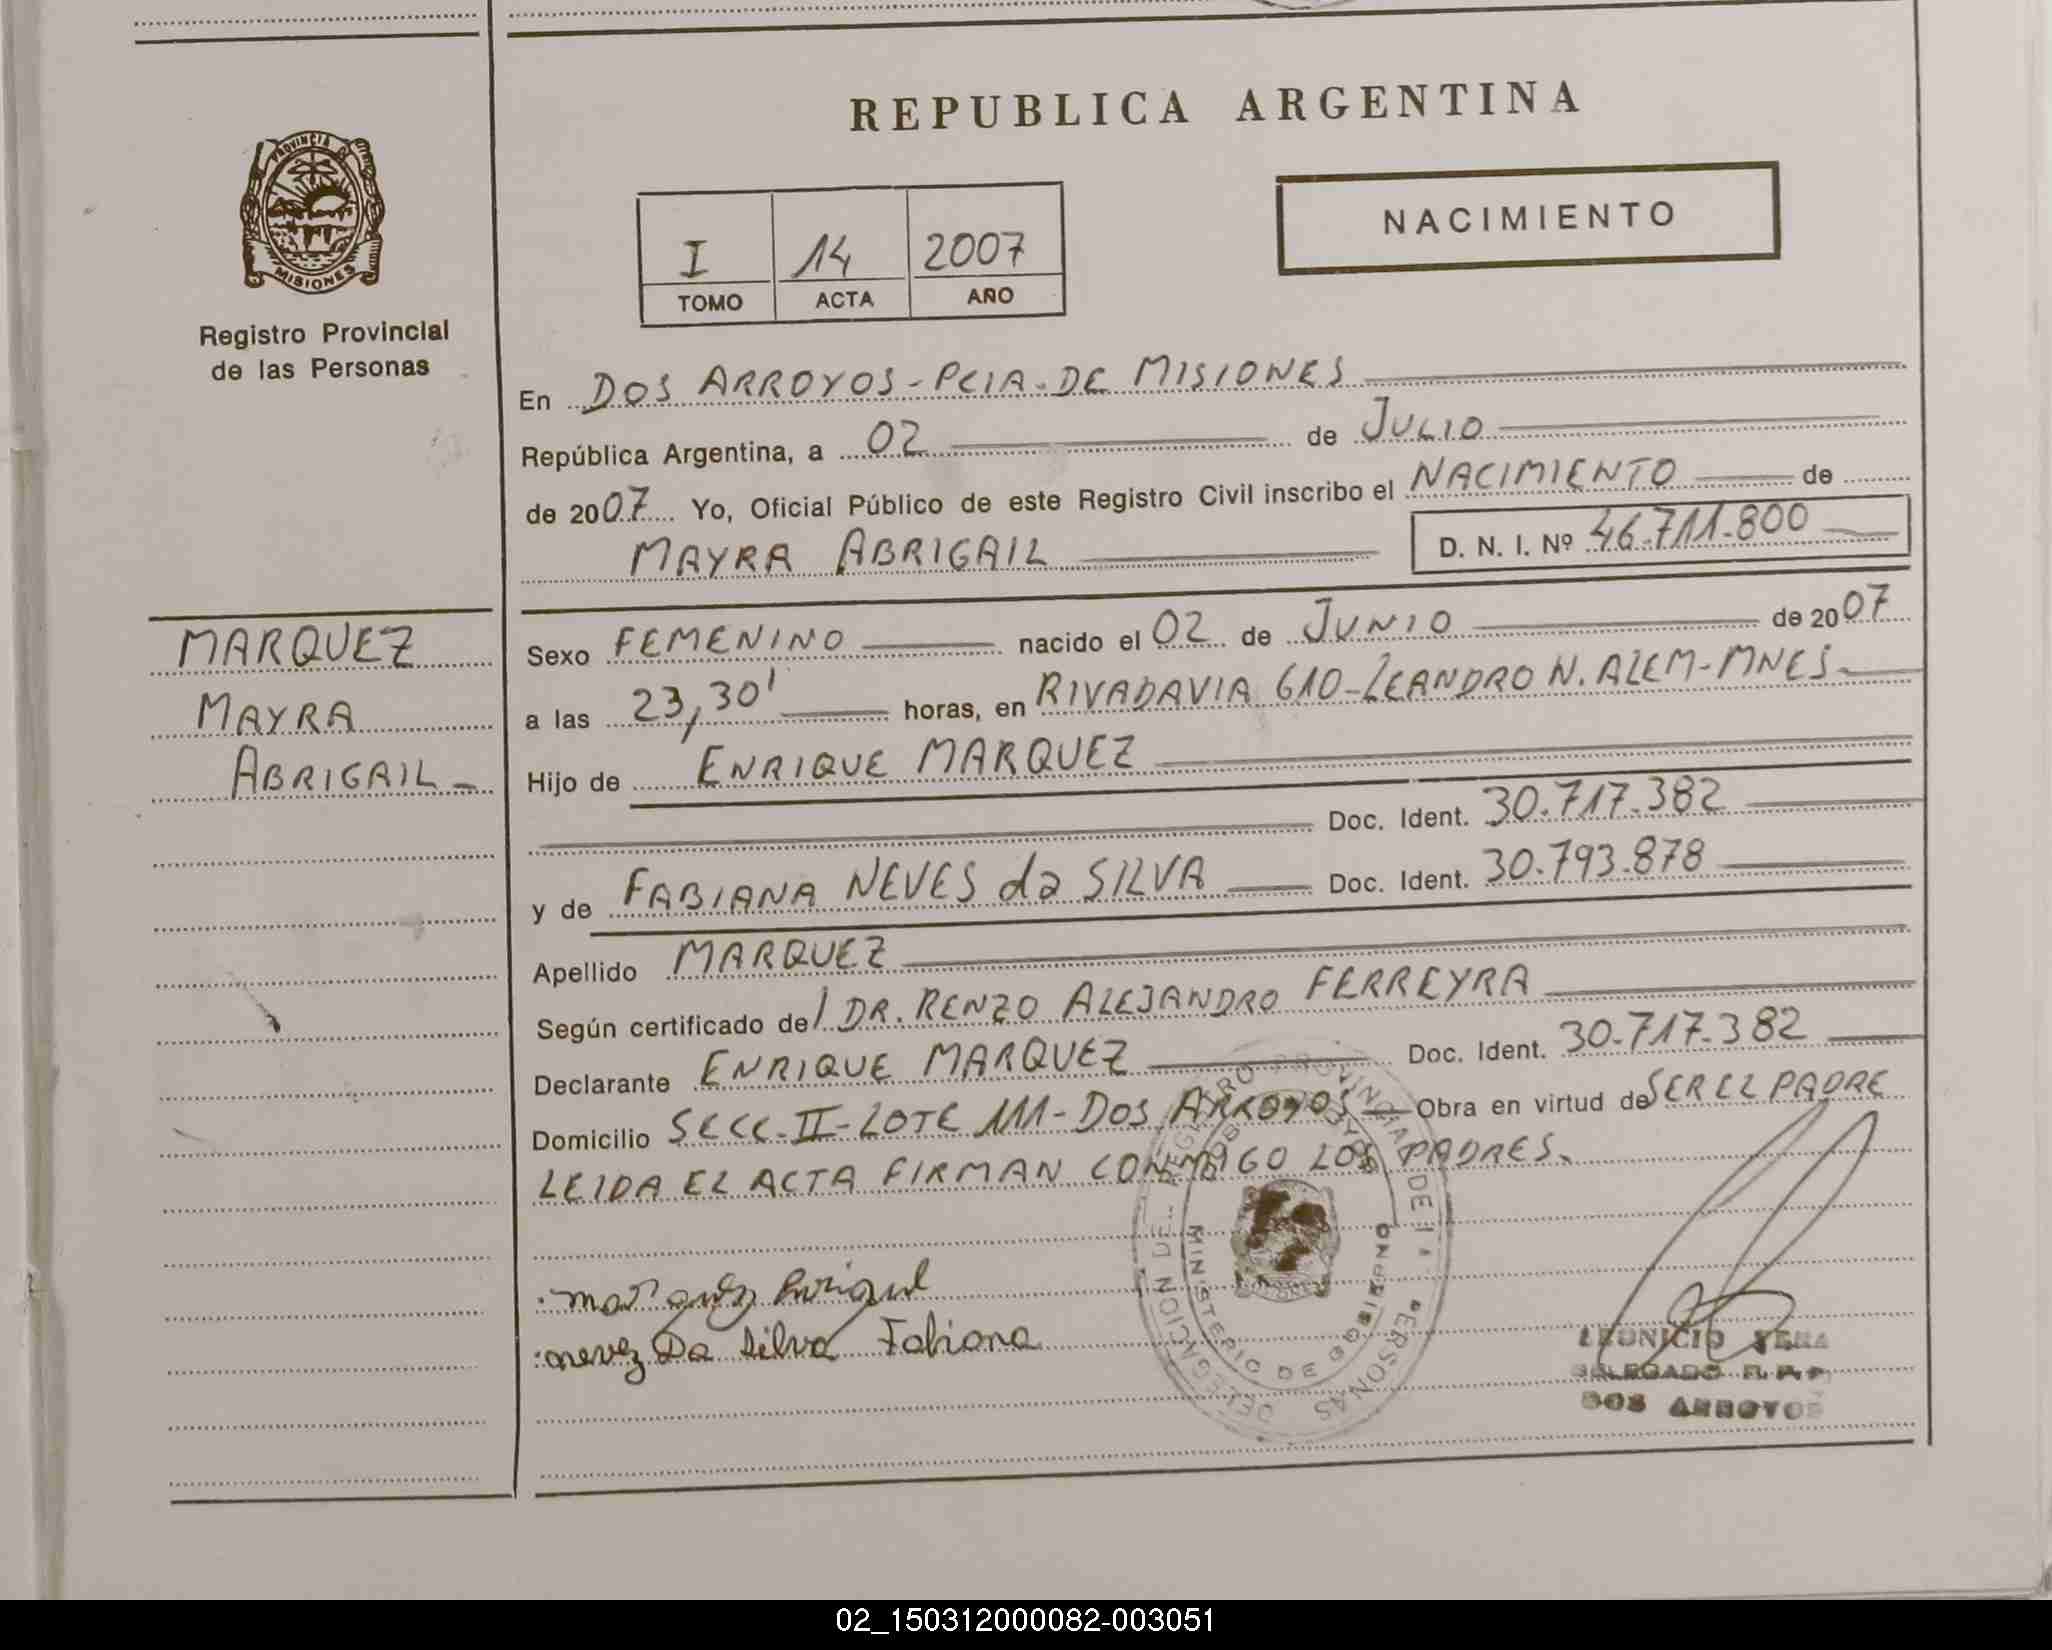 REPUBLICA ARGENTINA
PROVINCIA DE
MISIONES
Registro Provincial
de las Personas
NACIMIENTO
I 14 2007
TOMO ACTA AÑO
En DOS ARROYOS - PCIA. DE MISIONES
República Argentina, a 02 de JULIO
de 2007 Yo, Oficial Público de este Registro Civil inscribo el NACIMIENTO de
MAYRA ABRIGAIL D. N. I. Nº 46.711.800
MARQUEZ
MAYRA
ABRIGAIL -
Sexo FEMENINO nacido el 02 de JUNIO de 2007
a las 23,30' horas, en RIVADAVIA 610 - LEANDRO N. ALEM - MNES -
Hijo de ENRIQUE MARQUEZ
Doc. Ident. 30.717.382
y de FABIANA NEVES da SILVA Doc. Ident. 30.793.878
Apellido MARQUEZ
Según certificado de/ DR. RENZO ALEJANDRO FERREYRA
Declarante ENRIQUE MARQUEZ Doc. Ident. 30.717.382
Domicilio SECC - II - LOTE 111 - DOS ARROYOS Obra en virtud de SER EL PADRE
LEIDA EL ACTA FIRMAN CONMIGO LOS PADRES.
marquez Enrique
nevez Da Silva Fabiana
DELEGACION DEL REGISTRO PROVINCIAL DE PERSONAS
MINISTERIO DE GOBIERNO
LEONICIO VERA
DELEGADO R. P. P.
DOS ARROYOS
02_150312000082-003051